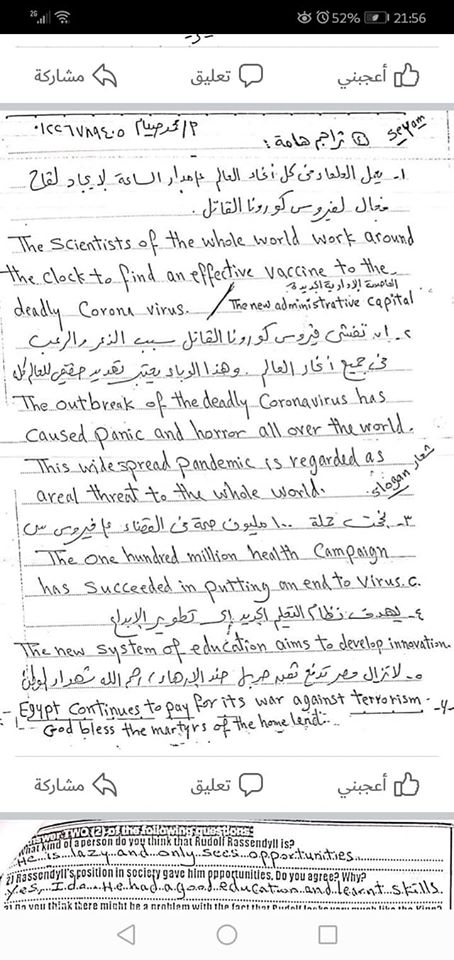 2G 52% 21:56
أعجبني تعليق مشاركة
Seyam ② تراجم هامة: م/محمد صيام ٠١٢٢٦٧٨٩٤٠٥
١- يعمل العلماء فى كل أنحاء العالم على مدار الساعة لإيجاد لقاح
فعال لفيروس كورونا القاتل.
The scientists of the whole world work around
the clock to find an effective vaccine to the
العاصمة الإدارية الجديدة
deadly Corona virus. / The new administrative capital
٢- إن تفشى فيروس كورونا القاتل سبب الذعر والرعب
فى جميع أنحاء العالم. وهذا الوباء يعتبر تهديد حقيقى للعالم كله
The outbreak of the deadly Coronavirus has
caused panic and horror all over the world.
This widespread pandemic is regarded as
areal threat to the whole world.
شعار slogan
٣- نجحت حملة ١٠٠ مليون صحة فى القضاء على فيروس س
The one hundred million health Campaign
has succeeded in putting an end to virus.c.
٤- يهدف نظام التعليم الجديد إلى تطوير الإبداع
The new system of education aims to develop innovation.
٥- لاتزال مصر تدفع ثمن حربها ضد الإرهاب، رحم الله شهداء الوطن
- Egypt continues to pay for its war against terrorism. -٤-
God bless the martyrs of the home land.
أعجبني تعليق مشاركة
Answer TWO (2) of the following questions:
What kind of a person do you think that Rudolf Rassendyll is?
He is lazy and only sees opportunities
2) Rassendyll's position in society gave him opportunities. Do you agree? Why?
Yes, I do. He had a good education and learnt skills.
3) Do you think there might be a problem with the fact that Rudolf looks very much like the King?